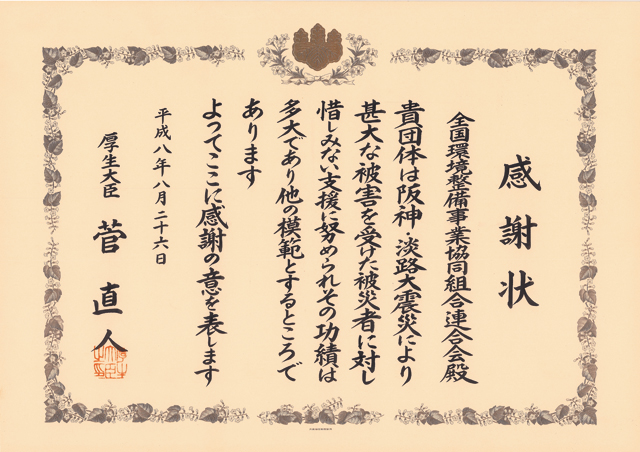 感謝状
全国環境整備事業協同組合連合会殿
貴団体は阪神・淡路大震災により
甚大な被害を受けた被災者に対し
惜しみない支援に努められその功績は
多大であり他の模範とするところで
あります
よってここに感謝の意を表します
平成八年八月二十六日
厚生大臣 菅直人